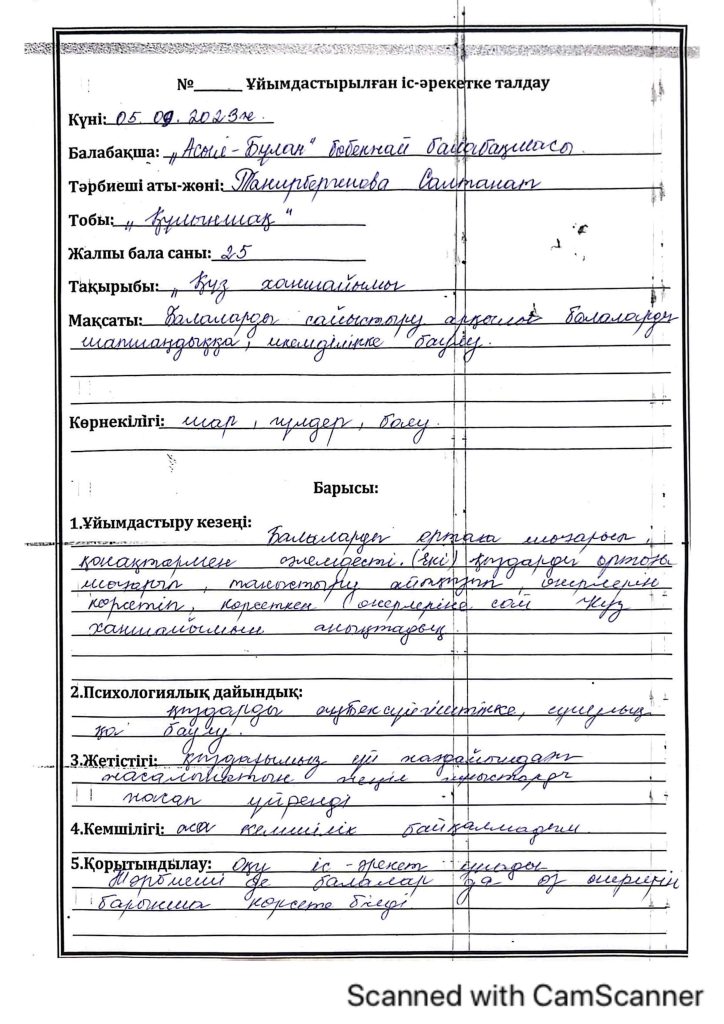 №_____ Ұйымдастырылған іс-әрекетке талдау
Күні: 05.09.2023ж.
Балабақша: „Асыл-Бұлан" бөбекжай балабақшасы
Тәрбиеші аты-жөні: Танирбергенова Салтанат
Тобы: „Құлыншақ"
Жалпы бала саны: 25
Тақырыбы: „Күз ханшайымы
Мақсаты: Балаларды сайыстыру арқылы балаларды
шапшаңдыққа, икемділікке баулу.
Көрнекілігі: шар, гүлдер, бояу.
Барысы:
1.Ұйымдастыру кезеңі:
Балаларды ортаға шығарып,
қонақтармен әлемдесті. (Екі) қыздарды ортаға
шығарып, таныстыру айтқызып өнерлерін
көрсетіп, көрсеткен өнерлеріне сай Күз
ханшайымын анықтадық.
2.Психологиялық дайындық:
қыздарды еңбексүйгіштікке, сұлулық
қа баулу.
3.Жетістігі: қыздарымыз үй жағдайындағы
жасалынатын жеңіл жұмыстарды
жасап үйренді
4.Кемшілігі: аса кемшілік байқалмады.
5.Қорытындылау: Оқу іс-әрекет ұнады
Тәрбиеші де балалар да өз өнерлерін
барынша көрсете білді
Scanned with CamScanner